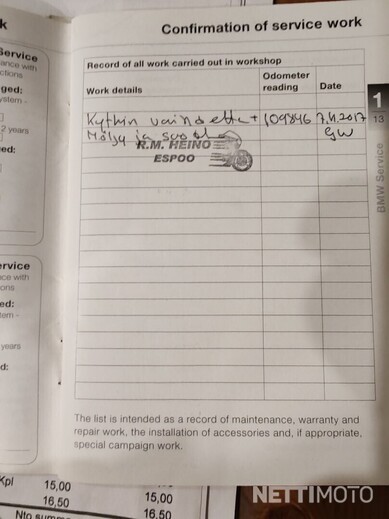 k
Confirmation of service work
Service
ance with
ctions
ged:
ystem -
2 years
ed:
Record of all work carried out in workshop
Work details
Odometer
reading
Date
109846 7.4.2017
Öljy ja
GW
R.M. HEINO
ESPOO
1
13
BMW Service
ervice
ce with
ons
ed:
tem -
years
d:
The list is intended as a record of maintenance, warranty and
repair work, the installation of accessories and, if appropriate,
special campaign work.
Kpl
15,00
15,00
16,50
16,50
Nto summ
NETTIMOTO